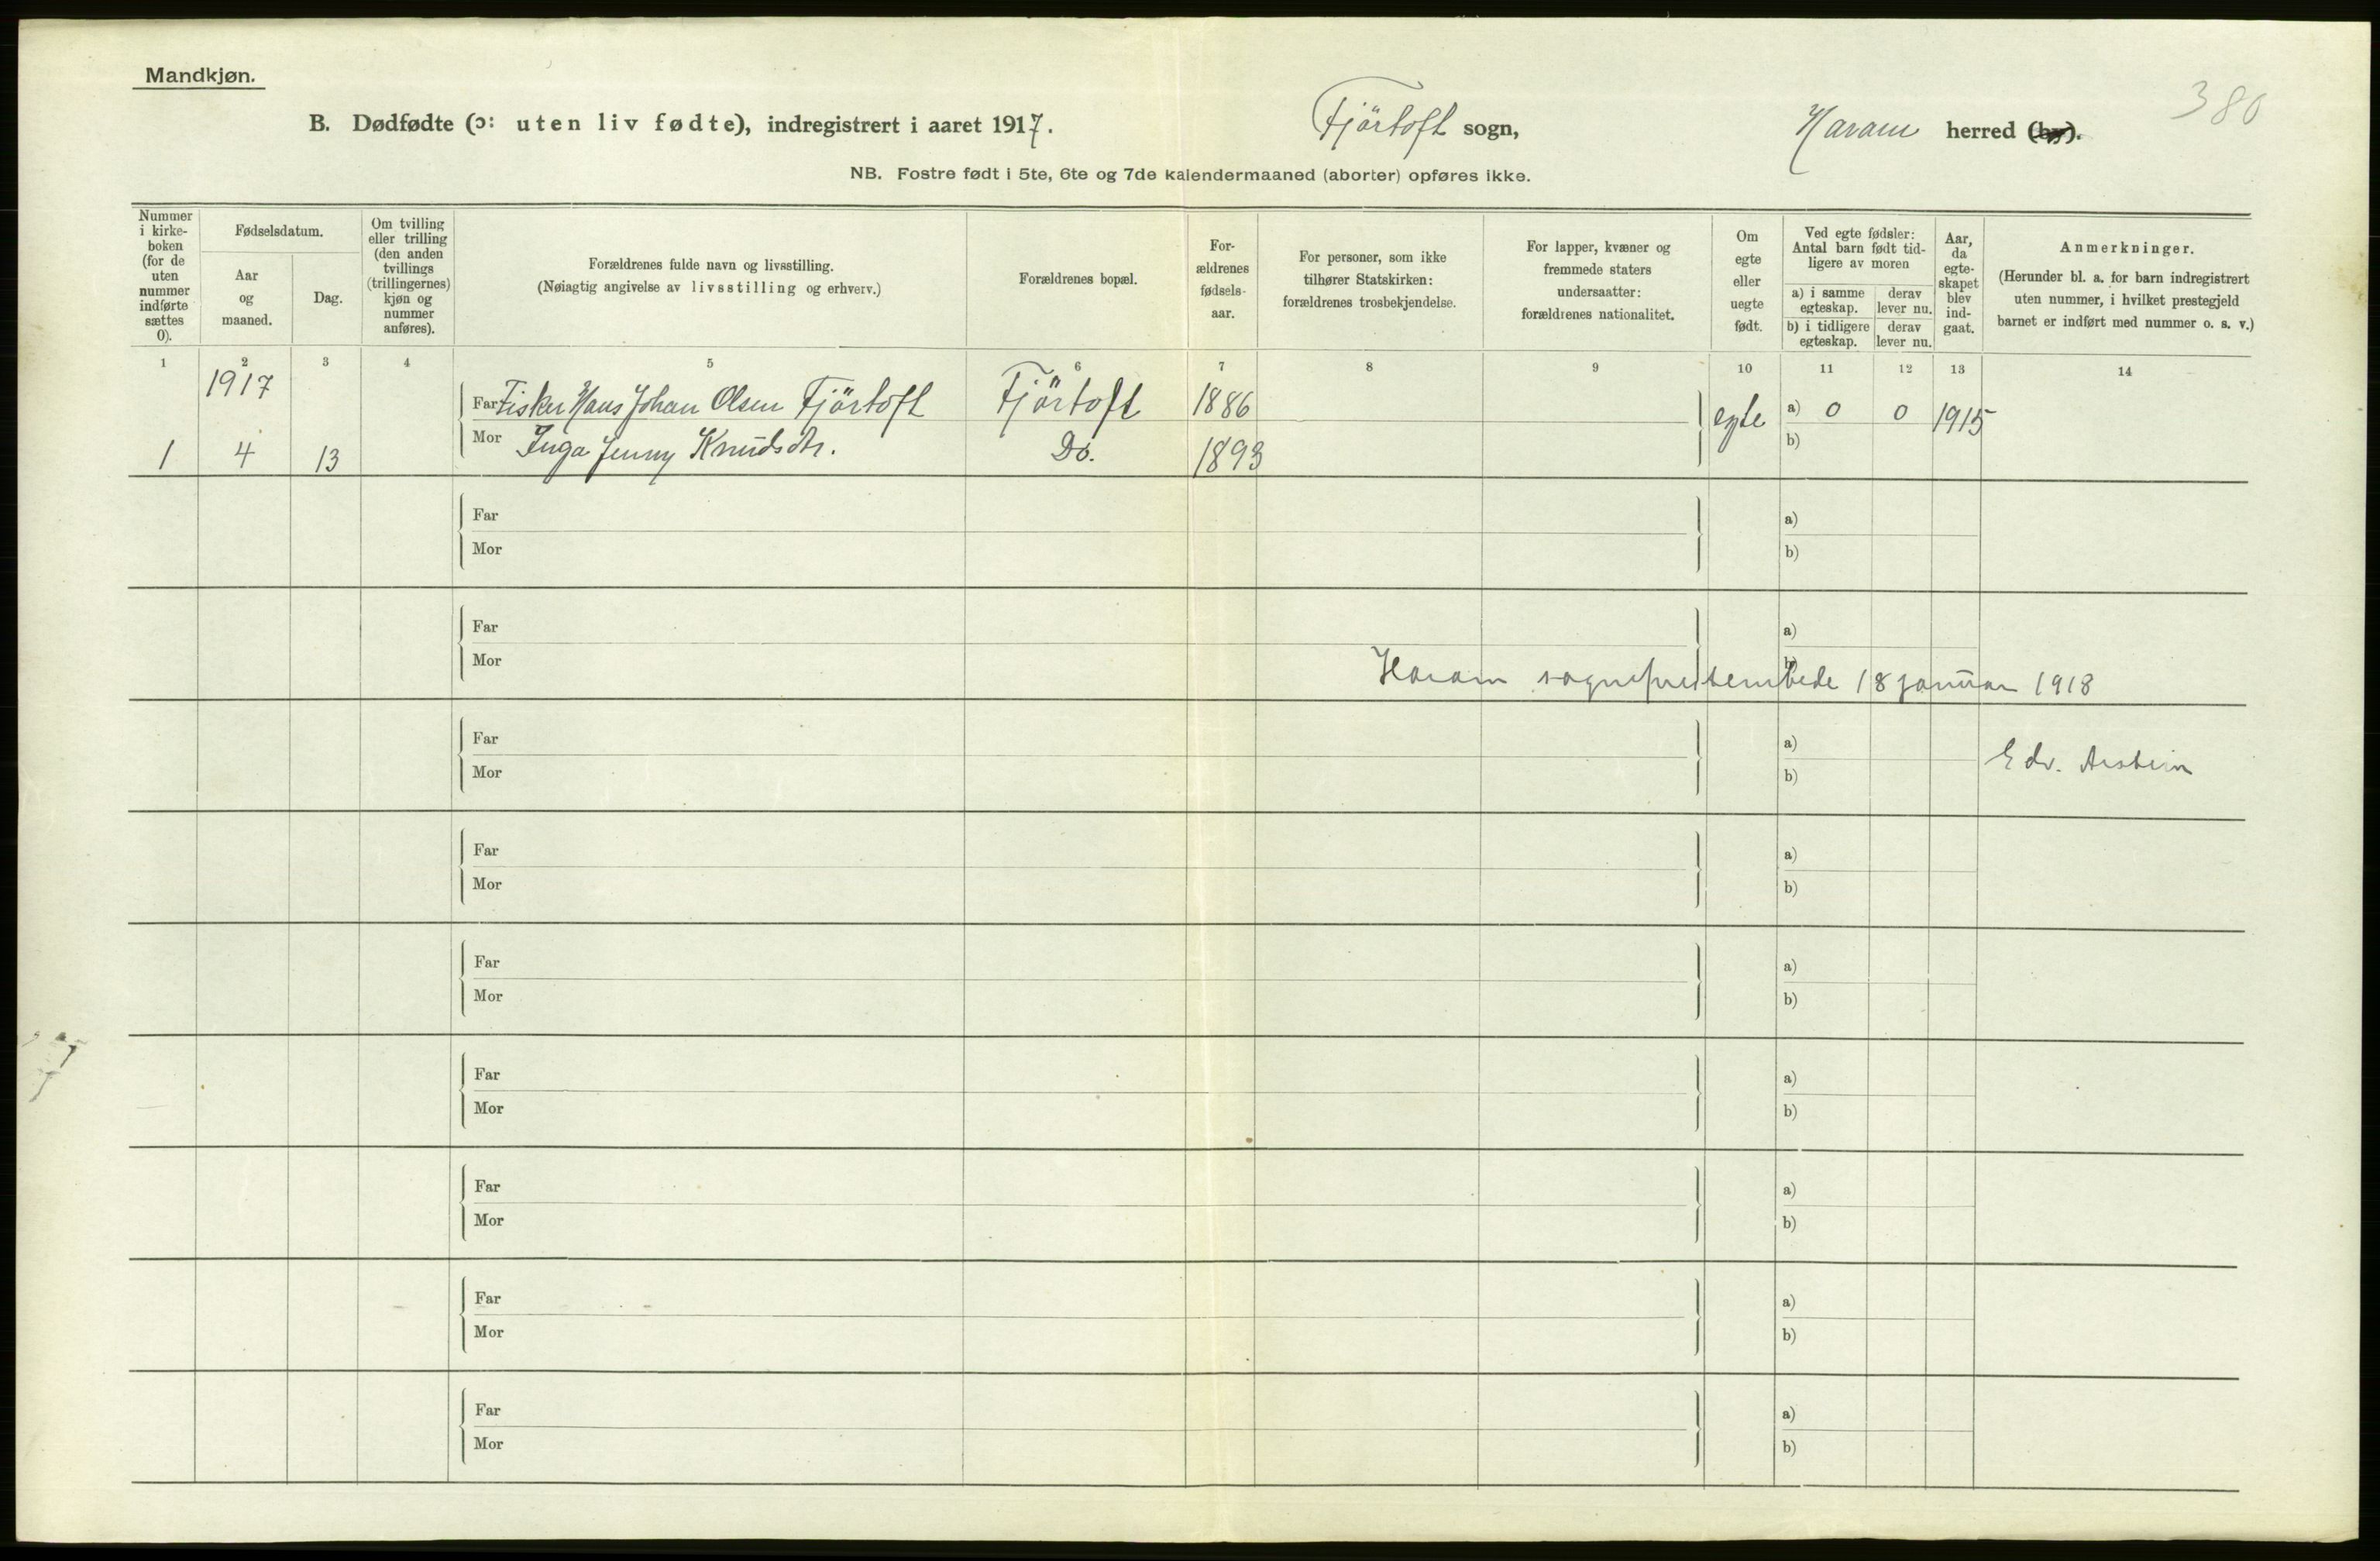 Mandkjøn.
380
B. Dødfødte (ɔ: uten liv fødte), indregistrert i aaret 1917. Fjörtoft sogn, Haram herred (by).
NB. Fostre født i 5te, 6te og 7de kalendermaaned (aborter) opføres ikke.
Nummer
i kirke-
boken
(for de
uten
nummer
indførte
sættes
0).
Fødselsdatum.
Aar
og
maaned.
Dag.
Om tvilling
eller trilling
(den anden
tvillings
(trillingernes)
kjøn og
nummer
anføres).
Forældrenes fulde navn og livsstilling.
(Nøiagtig angivelse av livsstilling og erhverv.)
Forældrenes bopæl.
For-
ældrenes
fødsels-
aar.
For personer, som ikke
tilhører Statskirken:
forældrenes trosbekjendelse.
For lapper, kvæner og
fremmede staters
undersaatter:
forældrenes nationalitet.
Om
egte
eller
uegte
født.
Ved egte fødsler:
Antal barn født tid-
ligere av moren
a) i samme
egteskap.
derav
lever nu.
b) i tidligere
egteskap.
derav
lever nu.
Aar,
da
egte-
skapet
blev
ind-
gaat.
Anmerkninger.
(Herunder bl. a. for barn indregistrert
uten nummer, i hvilket prestegjeld
barnet er indført med nummer o. s. v.)
1 2 3 4 5 6 7 8 9 10 11 12 13 14
1917
Far Fisker Hans Johan Olsen Fjörtoft Fjörtoft 1886 egte a) 0 0 1915
1 4 13 Mor Inga Jenny Knudsdtr. Do. 1893 b)
Far a)
Mor b)
Far a)
Mor b)
Haram sogneprestembede 18 januar 1918
Far a)
Edv.
Mor b)
Far a)
Mor b)
Far a)
Mor b)
Far a)
Mor b)
Far a)
Mor b)
Far a)
Mor b)
Far a)
Mor b)